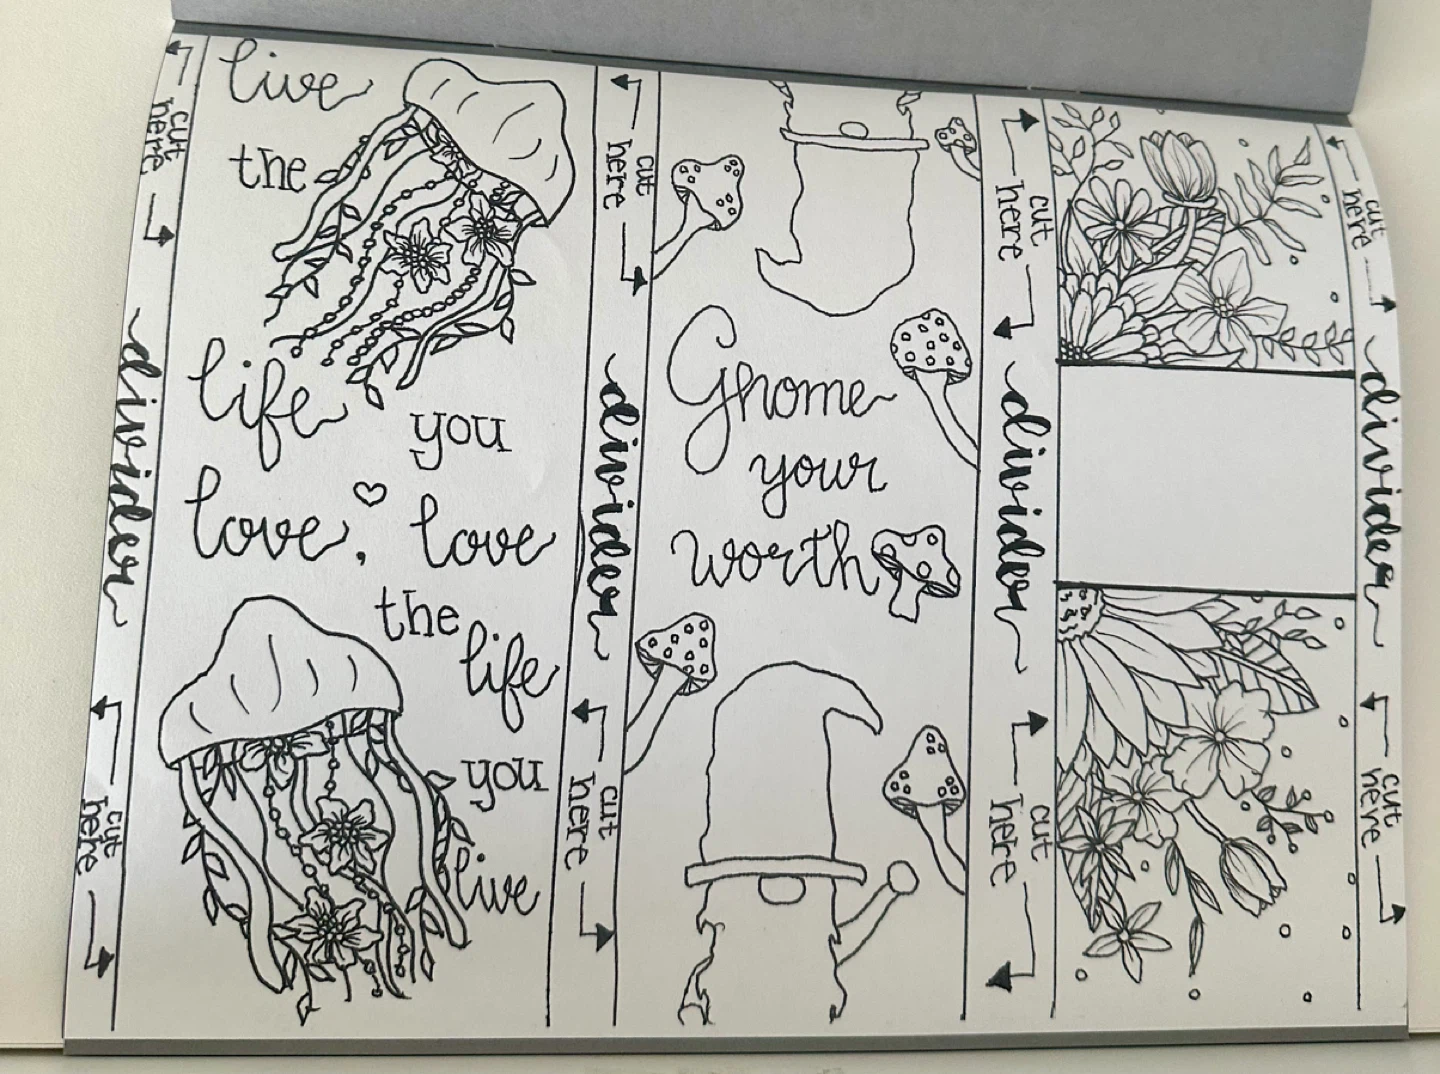 cut
here
divider
cut
here
live
the
life you
love, love
the
life
you
live
cut
here
divider
cut
here
Gnome
your
worth
cut
here
divider
cut
here
cut
here
divider
cut
here